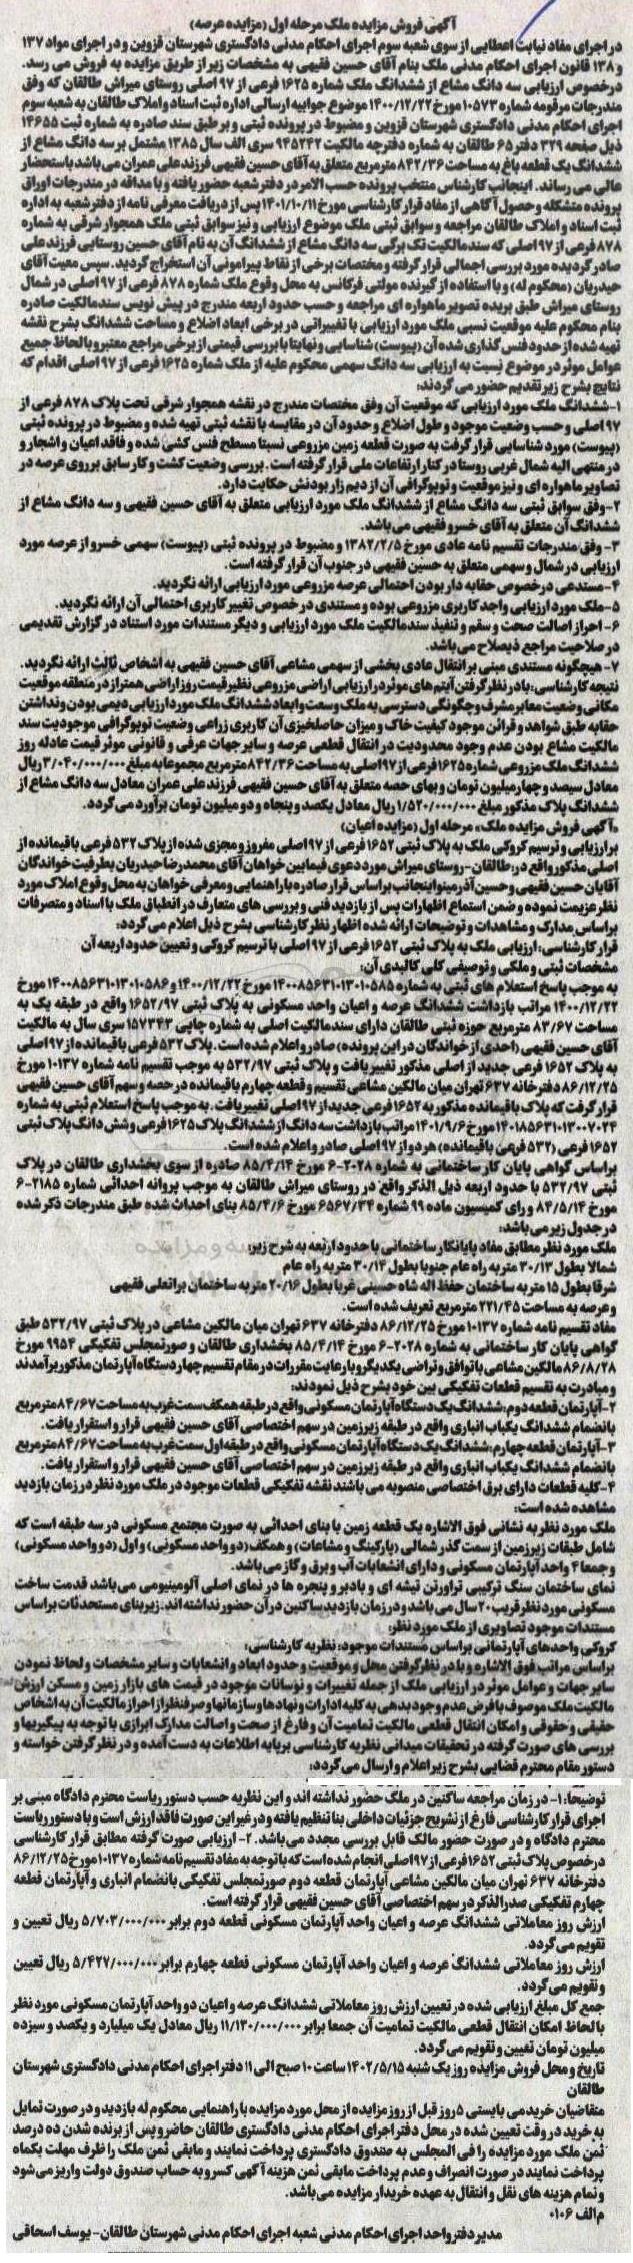 آگهی فروش مزایده ملک مرحله اول (مزایده عرصه)
در اجرای مفاد نیابت اعطایی از سوی شعبه سوم اجرای احکام مدنی دادگستری شهرستان قزوین و در اجرای مواد ۱۳۷
و ۱۳۸ قانون اجرای احکام مدنی ملک بنام آقای حسین فقیهی به مشخصات زیر از طریق مزایده به فروش می رسد.
درخصوص ارزیابی سه دانگ مشاع از ششدانگ ملک شماره ۱۶۲۵ فرعی از ۹۷ اصلی روستای میراش طالقان که وفق
مندرجات مرقومه شماره ۱۰۵۷۳ مورخ ۱۴۰۰/۱۲/۲۲ موضوع جوابیه ارسالی اداره ثبت اسناد و املاک طالقان به شعبه سوم
اجرای احکام مدنی دادگستری شهرستان قزوین و مضبوط در پرونده ثبتی و بر طبق سند صادره به شماره ثبت ۱۴۶۵۵
ذیل صفحه ۳۲۹ دفتر ۶۵ طالقان به شماره دفترچه مالکیت ۹۴۵۲۴۲ سری الف سال ۱۳۸۵ مشتمل بر سه دانگ مشاع از
ششدانگ یک قطعه باغ به مساحت ۸۴۲/۳۶ مترمربع متعلق به آقای حسین فقیهی فرزند علی عمران می باشد باستحضار
عالی می رساند. اینجانب کارشناس منتخب پرونده حسب الامر در دفتر شعبه حضور یافته و با مداقه در مندرجات اوراق
پرونده متشکله و حصول آگاهی از مفاد قرار کارشناسی مورخ ۱۴۰۱/۱۰/۱۱ پس از دریافت معرفی نامه از دفتر شعبه به اداره
ثبت اسناد و املاک طالقان مراجعه و سوابق ثبتی ملک موضوع ارزیابی و نیز سوابق ثبتی ملک همجوار شرقی به شماره
۸۷۸ فرعی از ۹۷ اصلی که سند مالکیت تک برگی سه دانگ مشاع از ششدانگ آن به نام آقای حسین روستایی فرزند علی
صادر گردیده مورد بررسی اجمالی قرار گرفته و مختصات برخی از نقاط پیرامونی آن استخراج گردید. سپس معیت آقای
حیدریان (محکوم له) و با استفاده از گیرنده مولتی فرکانس به محل وقوع ملک شماره ۸۷۸ فرعی از ۹۷ اصلی در شمال
روستای میراش طبق بریده تصویر ماهواره ای مراجعه و حسب حدود اربعه مندرج در پیش نویس سند مالکیت صادره
بنام محکوم علیه موقعیت نسبی ملک مورد ارزیابی با تغییراتی در برخی ابعاد اضلاع و مساحت ششدانگ بشرح نقشه
تهیه شده از حدود فنس گذاری شده آن (پیوست) شناسایی و نهایتا با بررسی قیمتی از برخی مراجع معتبر و با لحاظ جمیع
عوامل موثر در موضوع نسبت به ارزیابی سه دانگ سهمی محکوم علیه از ملک شماره ۱۶۲۵ فرعی از ۹۷ اصلی اقدام که
نتایج بشرح زیر تقدیم حضور می گردند:
۱-ششدانگ ملک مورد ارزیابی که موقعیت آن وفق مختصات مندرج در نقشه همجوار شرقی تحت پلاک ۸۷۸ فرعی از
۹۷ اصلی و حسب وضعیت موجود و طول اضلاع و حدود آن در مقایسه با نقشه ثبتی تهیه شده و مضبوط در پرونده ثبتی
(پیوست) مورد شناسایی قرار گرفت به صورت قطعه زمین مزروعی نسبتا مسطح فنس کشی شده و فاقد اعیان و اشجار و
در منتهی الیه شمال غربی روستا در کنار ارتفاعات ملی قرار گرفته است. بررسی وضعیت کشت و کار سابق بر روی عرصه در
تصاویر ماهواره ای و نیز موقعیت و توپوگرافی آن از دیم زار بودنش حکایت دارد.
۲-وفق سوابق ثبتی سه دانگ مشاع از ششدانگ ملک مورد ارزیابی متعلق به آقای حسین فقیهی و سه دانگ مشاع از
ششدانگ آن متعلق به آقای خسرو فقیهی می باشد.
۳- وفق مندرجات تقسیم نامه عادی مورخ ۱۳۸۲/۲/۵ و مضبوط در پرونده ثبتی (پیوست) سهمی خسرو از عرصه مورد
ارزیابی در شمال و سهمی متعلق به حسین فقیهی در جنوب آن قرار گرفته است.
۴-مستندی درخصوص حقابه دار بودن احتمالی عرصه مزروعی مورد ارزیابی ارائه نگردید.
۵-ملک مورد ارزیابی واجد کاربری مزروعی بوده و مستندی در خصوص تغییر کاربری احتمالی آن ارائه نگردید.
۶- احراز اصالت صحت و سقم و تنفیذ سند مالکیت ملک مورد ارزیابی و دیگر مستندات مورد استناد در گزارش تقدیمی
در صلاحیت مراجع ذیصلاح می باشد.
۷- هیچگونه مستندی مبنی بر انتقال عادی بخشی از سهمی مشاعی آقای حسین فقیهی به اشخاص ثالث ارائه نگردید.
نتیجه کارشناسی: با در نظر گرفتن آیتم های موثر در ارزیابی اراضی مزروعی نظیر قیمت روز اراضی همتراز در منطقه موقعیت
مکانی وضعیت معابر مشرف و چگونگی دسترسی به ملک وسعت و ابعاد ششدانگ ملک مورد ارزیابی دیمی بودن و نداشتن
حقابه طبق شواهد و قرائن موجود کیفیت خاک و میزان حاصلخیزی آن کاربری زراعی وضعیت توپوگرافی موجودیت سند
مالکیت مشاع بودن عدم وجود محدودیت در انتقال قطعی عرصه و سایر جهات عرفی و قانونی موثر قیمت عادله روز
ششدانگ ملک مزروعی شماره ۱۶۲۵ فرعی از ۹۷ اصلی به مساحت ۸۴۲/۳۶ مترمربع مجموعا به مبلغ ۳/۰۴۰/۰۰۰/۰۰۰ ریال
معادل سیصد و چهار میلیون تومان و بهای حصه متعلق به آقای حسین فقیهی فرزند علی عمران معادل سه دانگ مشاع از
ششدانگ پلاک مذکور مبلغ ۱/۵۲۰/۰۰۰/۰۰۰ ریال معادل یکصد و پنجاه و دو میلیون تومان برآورد می گردد.
«آگهی فروش مزایده ملک» مرحله اول (مزایده اعیان)
بر ارزیابی و ترسیم کروکی ملک به پلاک ثبتی ۱۶۵۲ فرعی از ۹۷ اصلی مفروز و مجزی شده از پلاک ۵۳۲ فرعی باقیمانده از
اصلی مذکور واقع در: طالقان-روستای میراش مورد دعوی فیمابین خواهان آقای محمدرضا حیدریان بطرفیت خواندگان
آقایان حسین فقیهی و حسین آذرمینو اینجانب براساس قرار صادره با راهنمایی و معرفی خواهان به محل وقوع املاک مورد
نظر عزیمت نموده و ضمن استماع اظهارات پس از بازدید فنی و بررسی های متعارف در انطباق ملک با اسناد و متصرفات
براساس مدارک و مشاهدات و توضیحات ارائه شده اظهارنظر کارشناسی بشرح ذیل اعلام می گردد:
قرار کارشناسی: ارزیابی ملک به پلاک ثبتی ۱۶۵۲ فرعی از ۹۷ اصلی با ترسیم کروکی و تعیین حدود اربعه آن
مشخصات ثبتی و ملکی و توصیفی کلی کالبدی آن:
به موجب پاسخ استعلام های ثبتی به شماره ۱۴۰۰۸۵۶۳۱۰۱۳۰۱۰۵۸۵ مورخ ۱۴۰۰/۱۲/۲۲ و ۱۴۰۰۸۵۶۳۱۰۱۳۰۱۰۵۸۶ مورخ
۱۴۰۰/۱۲/۲۲ مراتب بازداشت ششدانگ عرصه و اعیان واحد مسکونی به پلاک ثبتی ۱۶۵۲/۹۷ واقع در طبقه یک به
مساحت ۸۳/۶۷ مترمربع حوزه ثبتی طالقان دارای سند مالکیت اصلی به شماره چاپی ۱۵۷۳۴۳ سری سال به مالکیت
آقای حسین فقیهی (احدی از خواندگان در این پرونده) صادر و اعلام شده است. پلاک ۵۳۲ فرعی باقیمانده از ۹۷ اصلی
به پلاک ۱۶۵۲ فرعی جدید از اصلی مذکور تغییر یافت و پلاک ثبتی ۵۳۲/۹۷ به موجب تقسیم نامه شماره ۱۰۱۳۷ مورخ
۸۶/۱۲/۲۵ دفترخانه ۶۳۷ تهران میان مالکین مشاعی تقسیم و قطعه چهارم باقیمانده در حصه و سهم آقای حسین فقیهی
قرار گرفت که پلاک باقیمانده مذکور به ۱۶۵۲ فرعی جدید از ۹۷ اصلی تغییر یافت. به موجب پاسخ استعلام ثبتی به شماره
۱۴۰۱۸۵۶۳۱۰۱۳۰۰۷۰۲۴ مورخ ۱۴۰۱/۹/۶ مراتب بازداشت سه دانگ از ششدانگ پلاک ۱۶۲۵ فرعی و شش دانگ پلاک ثبتی
۱۶۵۲ فرعی (۵۳۲ فرعی باقیمانده) هر دو از ۹۷ اصلی صادر و اعلام شده است.
براساس گواهی پایان کار ساختمانی به شماره ۲۰۲۸-۶ مورخ ۸۵/۴/۱۴ صادره از سوی بخشداری طالقان در پلاک
ثبتی ۵۳۲/۹۷ با حدود اربعه ذیل الذکر واقع در روستای میراش طالقان به موجب پروانه احداثی شماره ۲۱۸۵-۶
مورخ ۸۴/۵/۱۴ و رای کمیسیون ماده ۹۹ شماره ۶۵۶۷/۳۴ مورخ ۸۵/۴/۶ بنای احداث شده طبق مندرجات ذکر شده
در جدول زیر می باشد:
ملک مورد نظر مطابق مفاد پایانکار ساختمانی با حدود اربعه به شرح زیر:
شمالا بطول ۳۰/۱۳ متر به راه عام جنوبا بطول ۳۰/۱۴ متر به راه عام
شرقا بطول ۱۵ متر به ساختمان حفظ اله شاه حسینی غربا بطول ۲۰/۱۶ متر به ساختمان براتعلی فقیهی
و عرصه به مساحت ۲۲۱/۴۵ مترمربع تعریف شده است.
مفاد تقسیم نامه شماره ۱۰۱۳۷ مورخ ۸۶/۱۲/۲۵ دفترخانه ۶۳۷ تهران میان مالکین مشاعی در پلاک ثبتی ۵۳۲/۹۷ طبق
گواهی پایان کار ساختمانی به شماره ۲۰۲۸-۶ مورخ ۸۵/۴/۱۴ بخشداری طالقان و صورتمجلس تفکیکی ۹۹۵۴ مورخ
۸۶/۸/۲۸ مالکین مشاعی با توافق و تراضی یکدیگر و با رعایت مقررات در مقام تقسیم چهار دستگاه آپارتمان مذکور برآمدند
و مبادرت به تقسیم قطعات تفکیکی بین خود بشرح ذیل نمودند:
۲-آپارتمان قطعه دوم: ششدانگ یک دستگاه آپارتمان مسکونی واقع در طبقه همکف سمت غرب به مساحت ۸۴/۶۷ مترمربع
بانضمام ششدانگ یکباب انباری واقع در طبقه زیرزمین در سهم اختصاصی آقای حسین فقیهی قرار و استقرار یافت.
۳-آپارتمان قطعه چهارم: ششدانگ یک دستگاه آپارتمان مسکونی واقع در طبقه اول سمت غرب به مساحت ۸۴/۶۷ مترمربع
بانضمام ششدانگ یکباب انباری واقع در طبقه زیرزمین در سهم اختصاصی آقای حسین فقیهی قرار و استقرار یافت.
۴-کلیه قطعات دارای برق اختصاصی منصوبه می باشند نقشه تفکیکی قطعات موجود در ملک مورد نظر در زمان بازدید
مشاهده شده است:
ملک مورد نظر به نشانی فوق الاشاره یک قطعه زمین با بنای احداثی به صورت مجتمع مسکونی در سه طبقه است که
شامل طبقات زیرزمین از سمت گذر شمالی (پارکینگ و مشاعات) و همکف (دو واحد مسکونی) و اول (دو واحد مسکونی)
و جمعا ۴ واحد آپارتمان مسکونی و دارای انشعابات آب و برق و گاز می باشد.
نمای ساختمان سنگ ترکیبی تراورتن تیشه ای و بادبر و پنجره ها در نمای اصلی آلومینیومی می باشد قدمت ساخت
مسکونی مورد نظر قریب ۲۰ سال می باشد و در زمان بازدید ساکنین در آن حضور نداشته اند. زیربنای مستحدثات براساس
مستندات موجود تصاویری از ملک مورد نظر:
کروکی واحدهای آپارتمانی براساس مستندات موجود: نظریه کارشناسی:
براساس مراتب فوق الاشاره و با در نظر گرفتن محل و موقعیت و حدود ابعاد و انشعابات و سایر مشخصات و لحاظ نمودن
سایر جهات و عوامل موثر در ارزیابی ملک از جمله تغییرات و نوسانات موجود در قیمت های بازار زمین و مسکن ارزش
مالکیت ملک موصوف با فرض عدم وجود بدهی به کلیه ادارات و نهادها و سازمانها و صرفنظر از احراز مالکیت آن به اشخاص
حقیقی و حقوقی و امکان انتقال قطعی مالکیت تمامیت آن و فارغ از صحت و اصالت مدارک ابرازی با توجه به پیگیریها و
بررسی های صورت گرفته در تحقیقات میدانی نظریه کارشناسی برپایه اطلاعات به دست آمده و در نظر گرفتن خواسته و
دستور مقام محترم قضایی بشرح زیر اعلام و ارسال می گردد:
توضیحا: ۱- در زمان مراجعه ساکنین در ملک حضور نداشته اند و این نظریه حسب دستور ریاست محترم دادگاه مبنی بر
اجرای قرار کارشناسی فارغ از تشریح جزئیات داخلی بنا تنظیم یافته و در غیر این صورت فاقد ارزش است و با دستور ریاست
محترم دادگاه و در صورت حضور مالک قابل بررسی مجدد می باشد. ۲- ارزیابی صورت گرفته مطابق قرار کارشناسی
درخصوص پلاک ثبتی ۱۶۵۲ فرعی از ۹۷ اصلی انجام شده است که با توجه به مفاد تقسیم نامه شماره ۱۰۱۳۷ مورخ ۸۶/۱۲/۲۵
دفترخانه ۶۳۷ تهران میان مالکین مشاعی آپارتمان قطعه دوم صورتمجلس تفکیکی بانضمام انباری و آپارتمان قطعه
چهارم تفکیکی صدرالذکر در سهم اختصاصی آقای حسین فقیهی قرار گرفته است.
ارزش روز معاملاتی ششدانگ عرصه و اعیان واحد آپارتمان مسکونی قطعه دوم برابر ۵/۷۰۳/۰۰۰/۰۰۰ ریال تعیین و
تقویم می گردد.
ارزش روز معاملاتی ششدانگ عرصه و اعیان واحد آپارتمان مسکونی قطعه چهارم برابر ۵/۴۲۷/۰۰۰/۰۰۰ ریال تعیین
و تقویم می گردد.
جمع کل مبلغ ارزیابی شده در تعیین ارزش روز معاملاتی ششدانگ عرصه و اعیان دو واحد آپارتمان مسکونی مورد نظر
با لحاظ امکان انتقال قطعی مالکیت تمامیت آن جمعا برابر ۱۱/۱۳۰/۰۰۰/۰۰۰ ریال معادل یک میلیارد و یکصد و سیزده
میلیون تومان تعیین و تقویم می گردد.
تاریخ و محل فروش مزایده روز یک شنبه ۱۴۰۲/۵/۱۵ ساعت ۱۰ صبح الی ۱۱ دفتر اجرای احکام مدنی دادگستری شهرستان
طالقان
متقاضیان خرید می بایستی ۵ روز قبل از روز مزایده از محل مورد مزایده با راهنمایی محکوم له بازدید و در صورت تمایل
به خرید در وقت تعیین شده در محل دفتر اجرای احکام مدنی دادگستری طالقان حاضر و پس از برنده شدن ده درصد
ثمن ملک مورد مزایده را فی المجلس به صندوق دادگستری پرداخت نمایند و مابقی ثمن ملک را ظرف مهلت یکماه
پرداخت نمایند در صورت انصراف و عدم پرداخت مابقی ثمن هزینه آگهی کسر و به حساب صندوق دولت واریز می شود
و تمام هزینه های نقل و انتقال به عهده خریدار مزایده می باشد.
م الف ۰۱۰۶
مدیر دفتر واحد اجرای احکام مدنی شعبه اجرای احکام مدنی شهرستان طالقان- یوسف اسحاقی